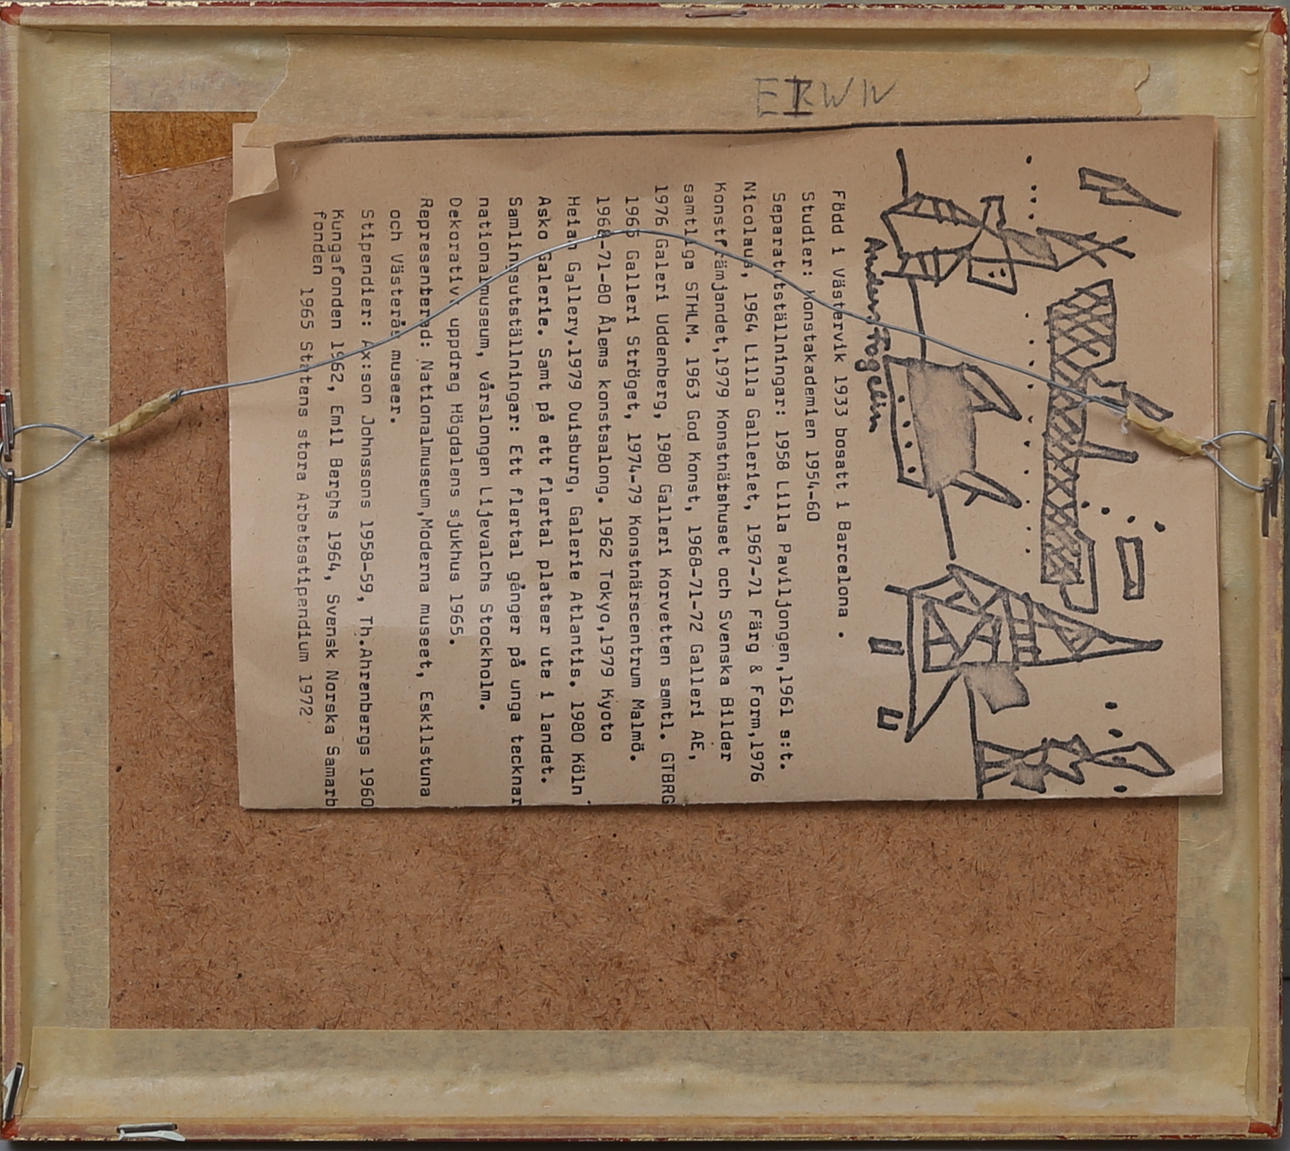 EKWIV
Anders Fogelin
Född i Västervik 1933 bosatt i Barcelona .
Studier: Konstakademien 1954-60
Separatutställningar: 1958 Lilla Paviljongen,1961 s:t.
Nicolaus, 1964 Lilla Galleriet, 1967-71 Färg & Form,1976
Konstfrämjandet,1979 Konstnärshuset och Svenska Bilder
samtliga STHLM. 1963 God Konst, 1968-71-72 Galleri AE,
1976 Galeri Uddenberg, 1980 Galleri Korvetten samtl. GTBRG
1965 Galleri Ströget, 1974-79 Konstnärscentrum Malmö.
1968-71-80 Ålems konstsalong. 1962 Tokyo,1979 Kyoto
Heian Gallery.1979 Duisburg, Galerie Atlantis. 1980 Köln
Asko Galerie. Samt på ett flertal platser ute i landet.
Samlingsutställningar: Ett flertal gånger på unga tecknar
nationalmuseum, vårslongen Liljevalchs Stockholm.
Dekorativa uppdrag Högdalens sjukhus 1965.
Representerad: Nationalmuseum,Moderna museet, Eskilstuna
och Västerås museer.
Stipendier: Ax:son Johnssons 1958-59, Th.Ahrenbergs 1960
Kungafonden 1962, Emil Berghs 1964, Svensk Norska Samarb
fonden 1965 Statens stora Arbetsstipendium 1972